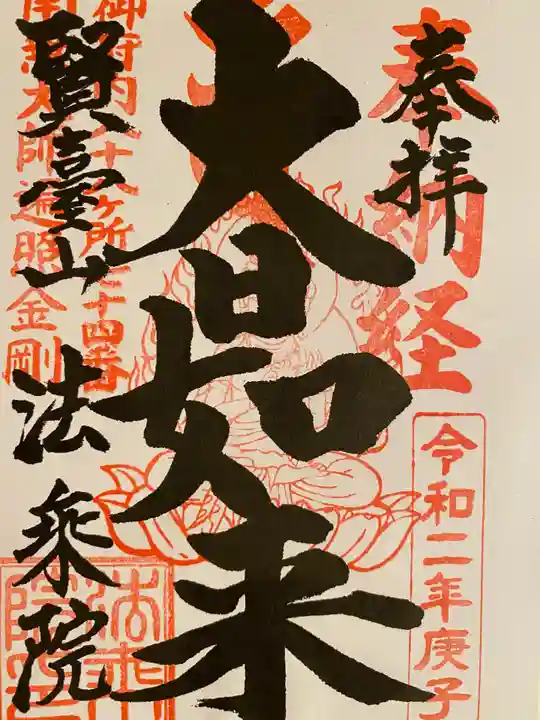 奉拝
奉納経
令和二年庚子
大日如来
御府内八十八ヶ所七十四番
南無大師遍照金剛
賢臺山 法乗院